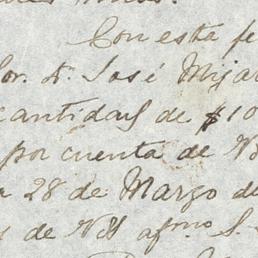 Con esta fe
Sor. D. José Mijar
cantidad de $10
por cuenta de N
28 de Marzo de
de afmo S. S.